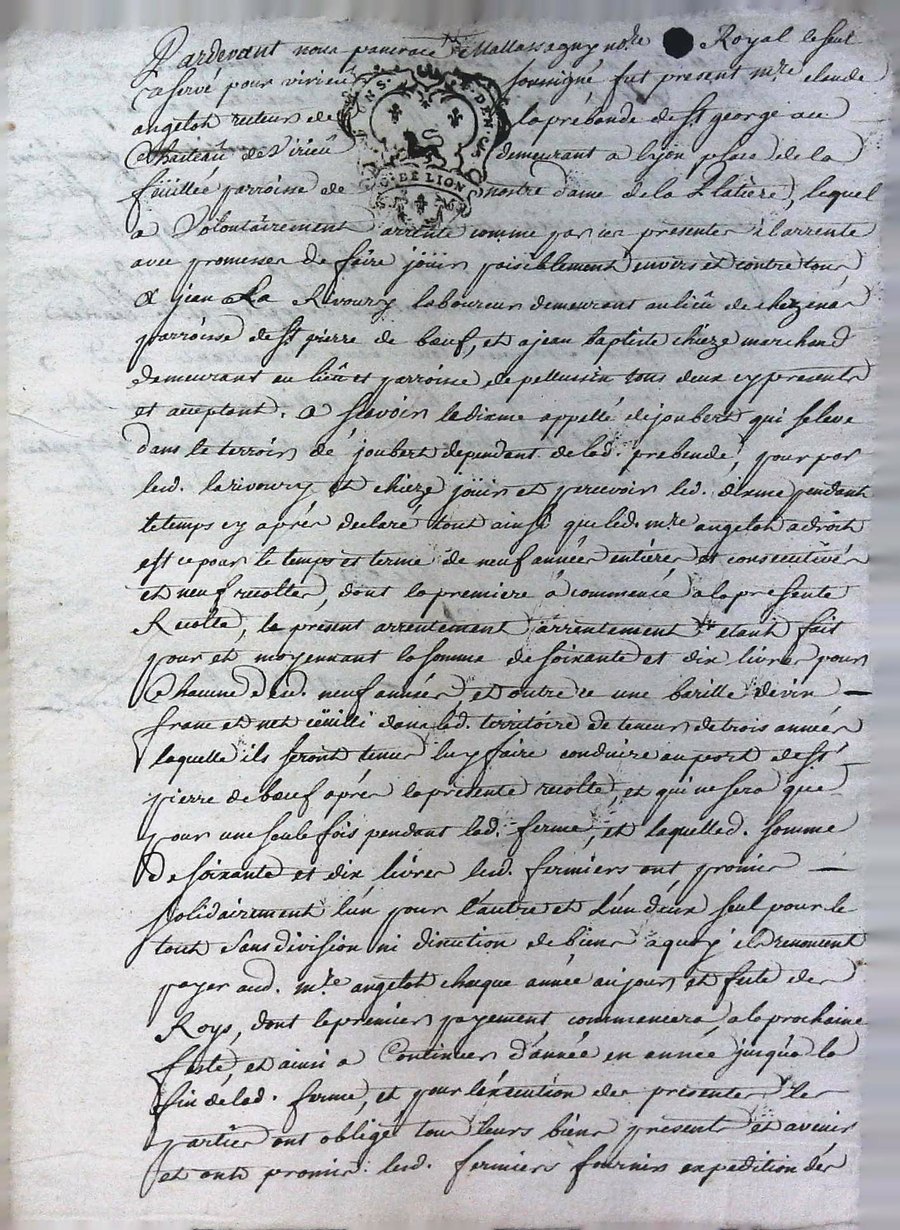 Pardevant nous pancrace Mallassagny no.re Royal le seul
reservé pour virieu soussigné, fut present m.re claude
angelot recteur de la prebande de S.t george au
Chateau de Virieu demeurant a lyon place de la
feüillée parroisse de nostre dame de la Platière, lequel
a Volontairement arrenté comme par ces presentes il arrente
avec promesse de faire jöuir paisiblement envers et contre tous
A jean La Rivoury laboureur demeurant au lieu de chezenas
parroisse de S.t pierre de bœuf, et a jean baptiste chieze marchand
demeurant au lieu et parroisse de pellussin tous deux cy presents
et acceptant. A sçavoir la dixme appellé de joubert qui se leve
dans le terroir de joubert dependant de lad. prebende, pour par
lesd. larivoury et chieze jöuir et percevoir led. dixme pendant
le temps cy aprés declaré tout ainsi que led. m.re angelot a droit
est ce pour le temps et terme de neuf année entiéres et consecutives
et neuf recoltes, dont la premiere a commencé a la presente
Recolte, le présent arrentement arrentement etant fait
pour et moyennant la somme de soixante et dix livres pour
Chacune desd. neuf années et outre ce une barille de vin
franc et net cüeilli dans lad. territoire de teneur de trois années
laquelle ils seront tenus luy faire conduire au port de S.t
pierre de bœuf aprés la presente recolte, et qui ne sera que
pour une seule fois pendant lad. ferme, et laquelle d. somme
de soixante et dix livres lesd. fermiers ont promis
solidairement l'un pour l'autre et l'un d'eux seul pour le
tout sans division ni discution de biens a quoy ils renoncent
payer aud. m.re angelot chaque année au jour et feste des
Roys, dont le premier payement commencera a la prochaine
feste, et ainsi a Continuer d'année en année jusqu'a la
fin de lad. ferme, et pour l'éxécution des presentes les
parties ont obligé tous leurs biens présents et avenir
et ont promis lesd. fermiers fournir expedition des
GEN DE LION